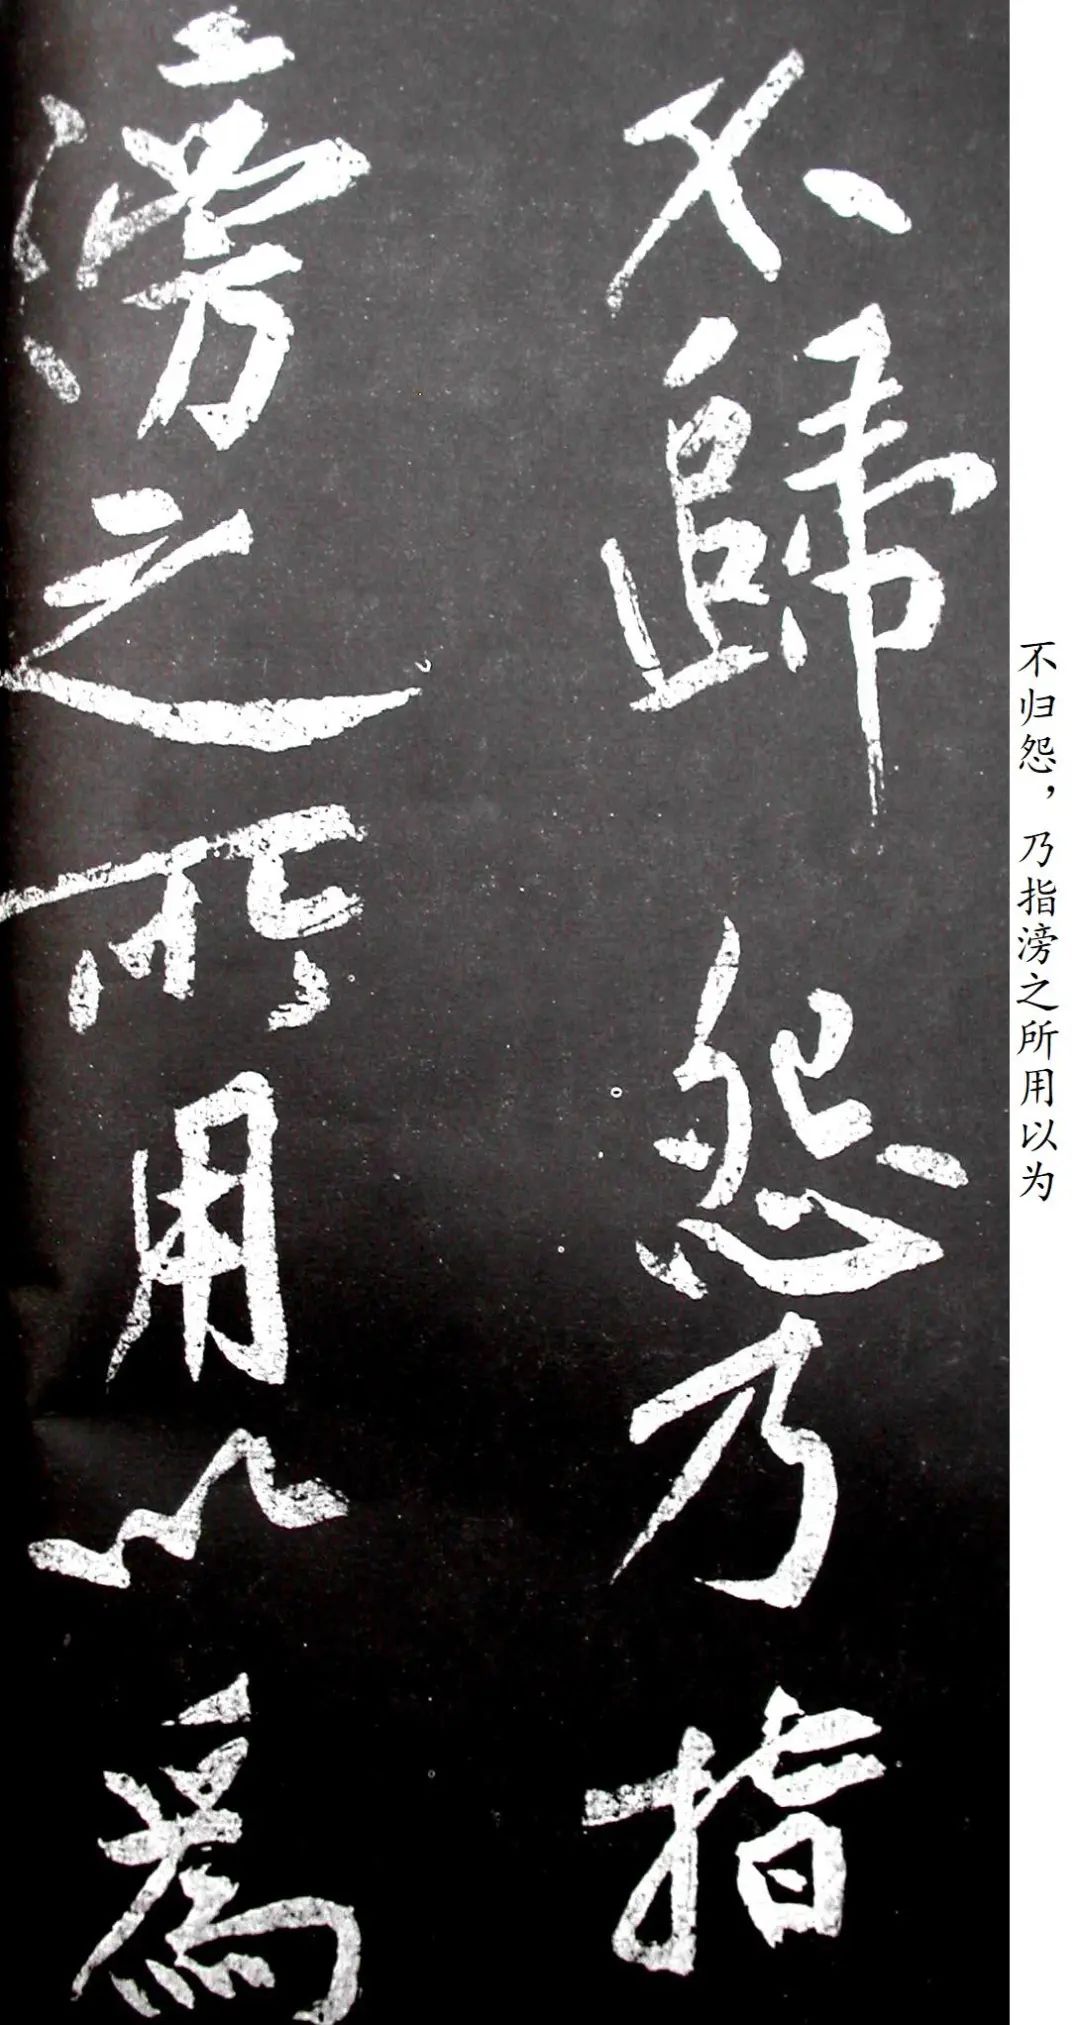 不歸怨乃指
滂之所用以為
不归怨，乃指滂之所用以为